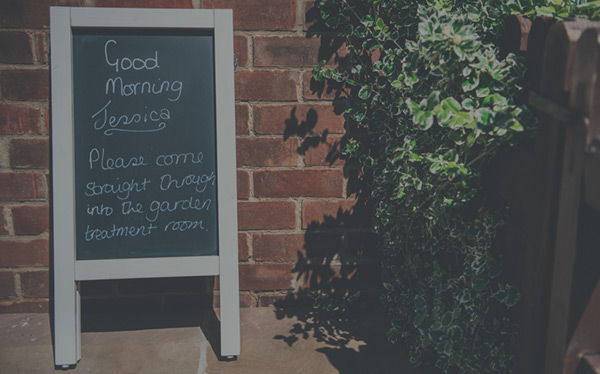 Good
Morning
Jessica
Please come
straight through
into the garden
treatment room.